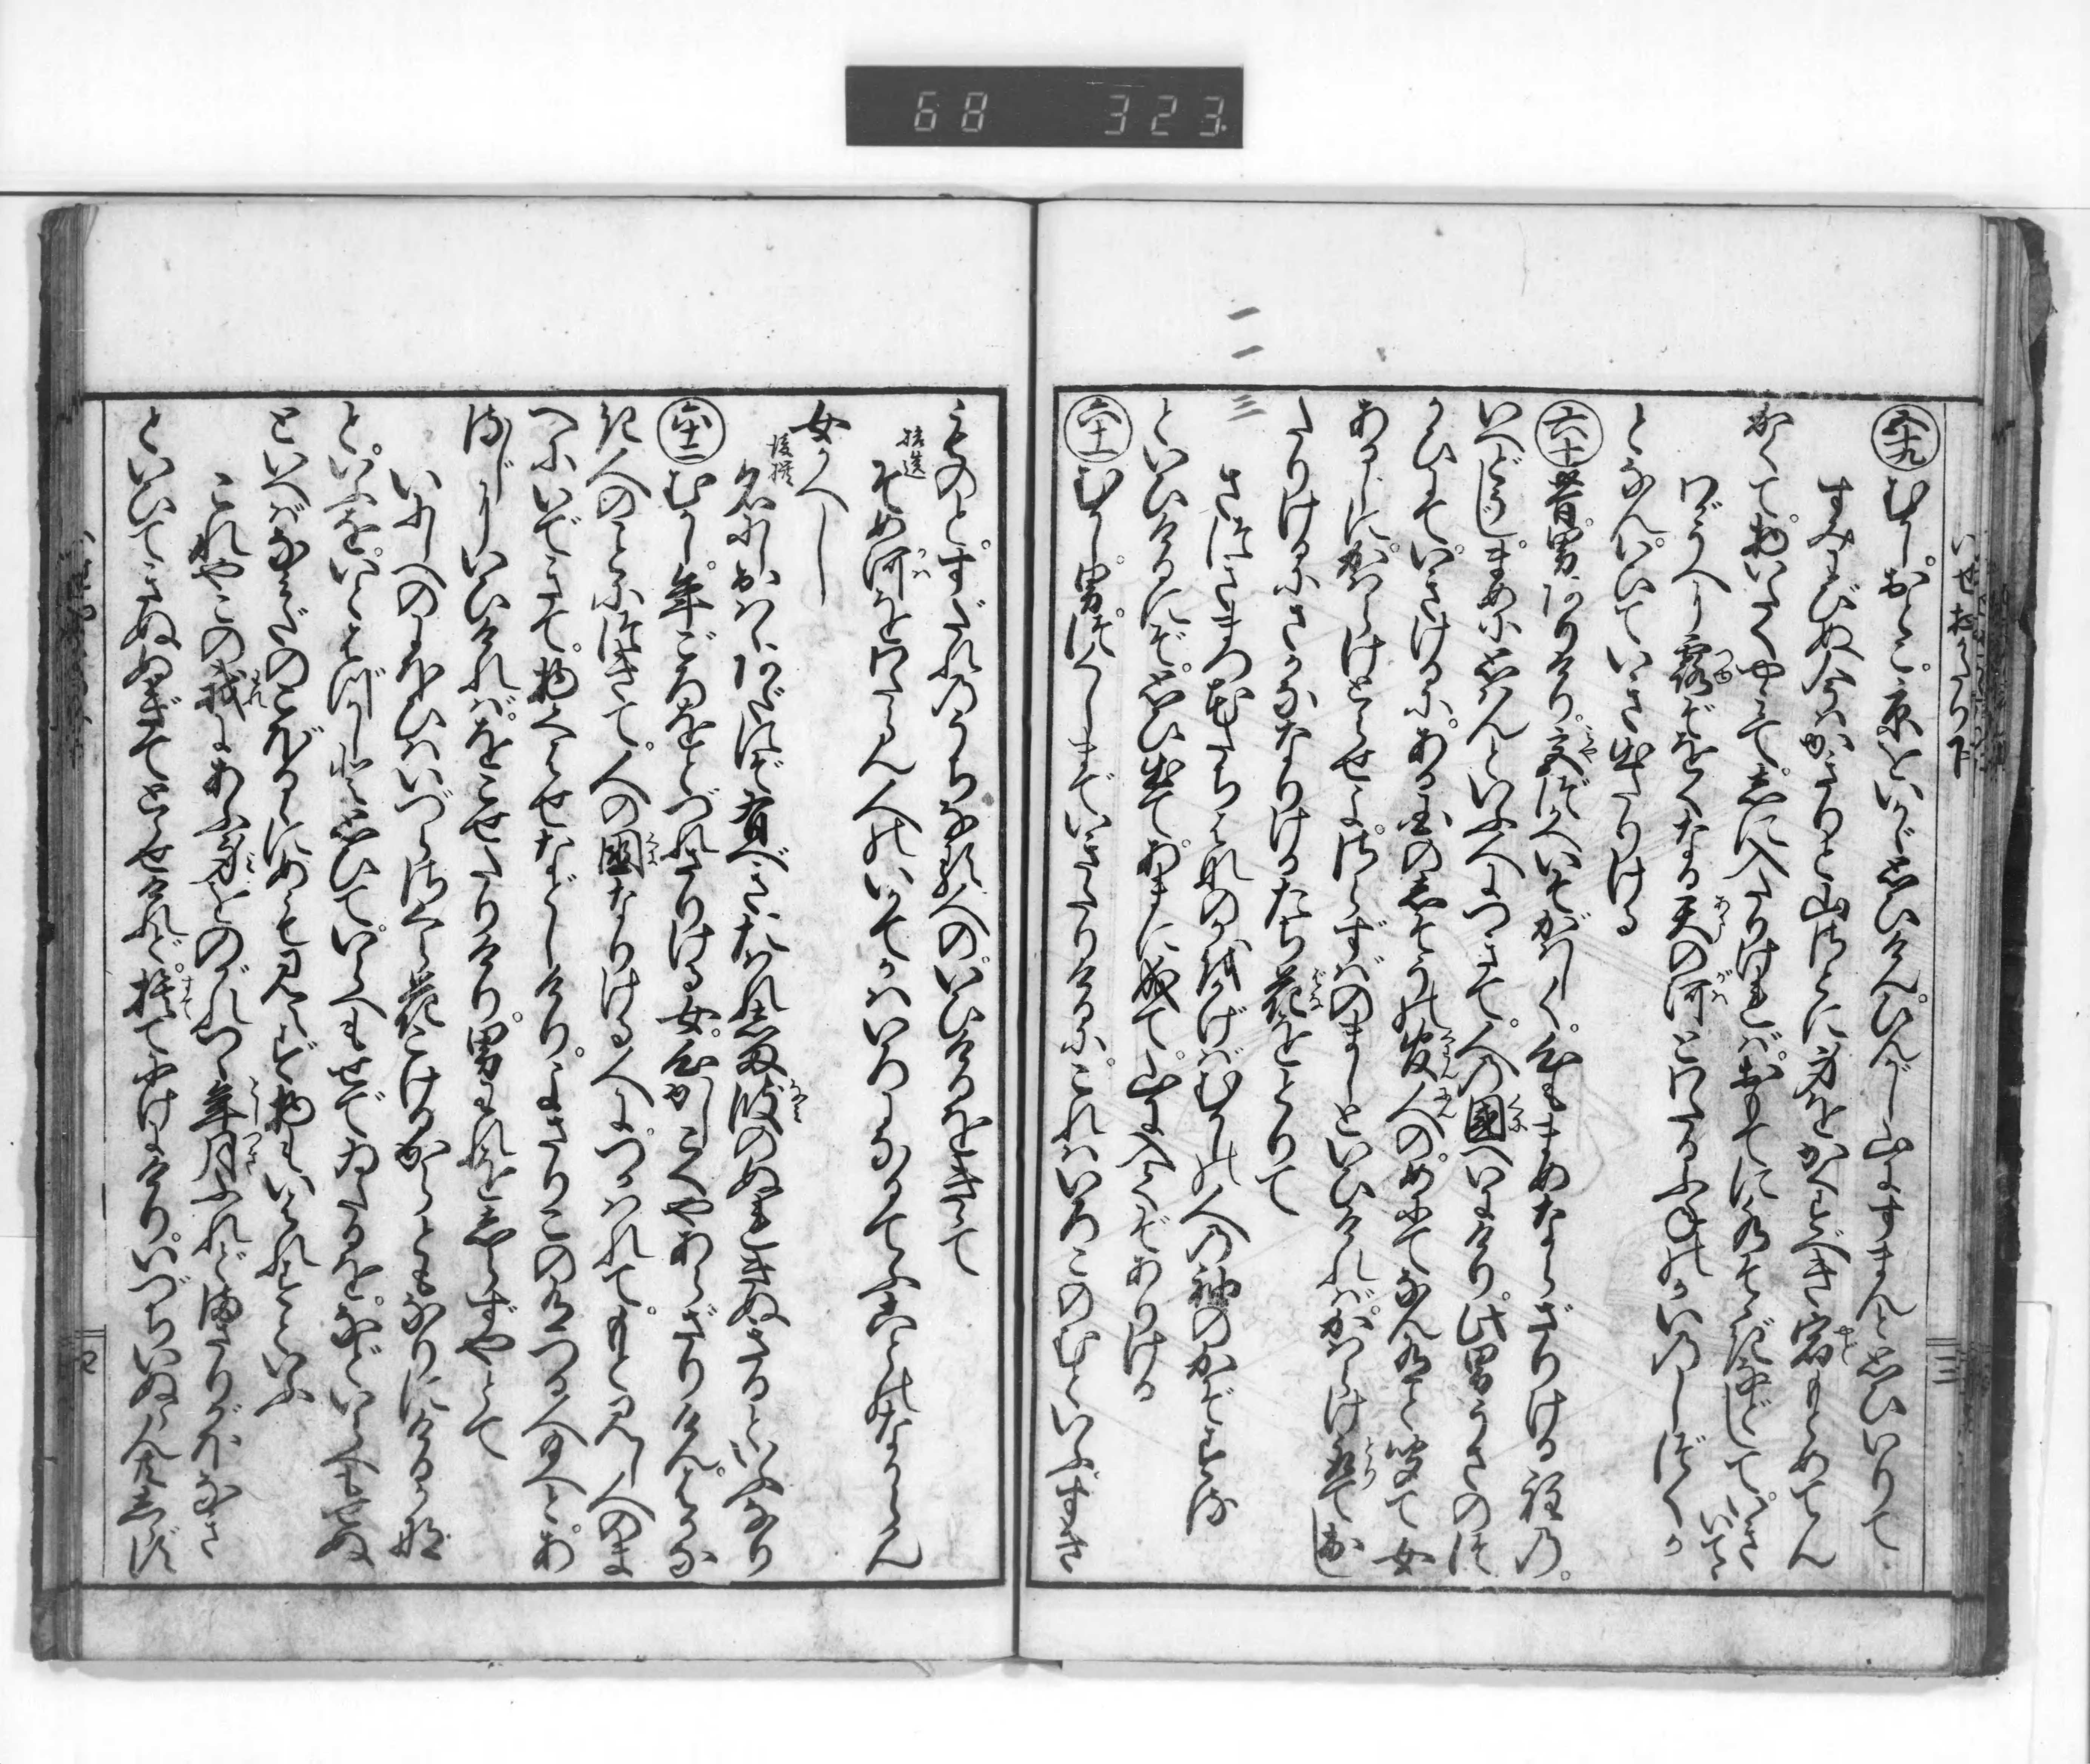 68 323
いせ物がたり下
五十九 むかしおとこ京をいかゞ思ひけんひんがし山にすまんと思ひいりて
すみわびぬ今はかぎりと山ざとに身をかくすべき宿もとめてん
かくて物いたくやみてしに入たりければおもてに水そゝぎなどしていき
いでて
わがうへに露ぞをくなる天の河とわたるふねのかいのしづくか
となんいひていき出たりける
六十 昔男有けり宮づかへいそがしく心もまめならざりける程の
いへどうじまめに思はんといふ人につきて人の國へいにけり此男うさのつ
かひにていきけるにある国のしぞうの官人のめにてなん有と聞て女
あるじにかはらけとらせよさらずばのまじといひければかはらけ取ていだし
たりけるにさかななりけるたち花をとりて
一一三
さ月まつ花たち花のかをかげばむかしの人の袖のかぞする
といひけるにぞ思ひ出てあまに成て山に入てぞありける
六十一 むかし男つくしまでいきたりけるにこれはいろこのむといふすき
ものとすだれのうちなる人のいひけるをきゝて
拾遺 そめ河をわたらん人のいかでかはいろになるてふことのなからん
女かへし
後撰 名にしおはゞあだにぞ有べきたはれ嶋浪のぬれぎぬきるといふなり
六十二 むかし年ごろをとづれざりける女心かしこくやあらざりけんはかな
き人のことにつきて人の國なりける人につかはれてもと見し人のま
へにいできて物くはせなどしけりよさりこのありつる人給へとあ
るじにいひければをこせたりけり男われをしらずやとて
いにしへのにほひはいづらさくら花こけるからともなりにけるかな
といふをいとはづかしと思ひていらへもせでゐたるをなどいらへもせぬ
といへばなみだのこぼるゝにめも見えず物もいはれずといふ
これやこの我にあふ身をのがれつゝ年月ふれどまさりがほなき
といひてきぬぬぎてとらせけれど捨てにげにけりいづちいぬらん共しらず
三
四